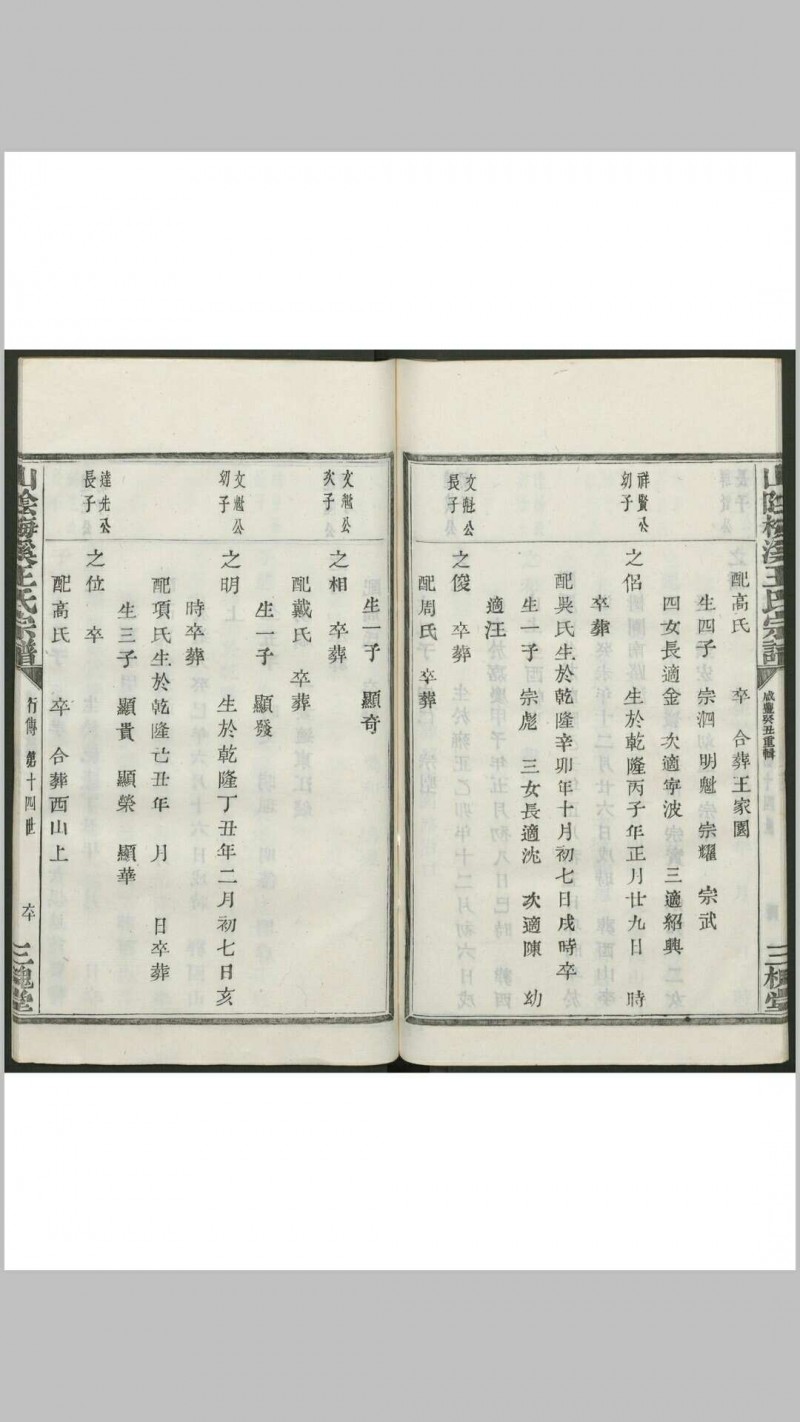 山陰梅溪王氏宗譜
咸豐癸丑重輯
三槐堂
配高氏 卒 合葬王家園
生四子 宗泗 明魁 宗耀 宗武
四女長適金 次適寧波 三適紹興
祥賢公
幼子
之侶 生於乾隆丙子年正月廿九日 時
卒葬
配吳氏生於乾隆辛卯年十月初七日戌時卒
生一子 宗彪 三女長適沈 次適陳 幼
適汪
文魁公
長子
之俊 卒葬
配周氏 卒葬
生一子 顯奇
文魁公
次子
之相 卒葬
配戴氏 卒葬
生一子 顯發
文魁公
幼子
之明 生於乾隆丁丑年二月初七日亥
時卒葬
配項氏生於乾隆亡丑年 月 日卒葬
生三子 顯貴 顯榮 顯華
達先公
長子
之位 卒
配高氏 卒 合葬西山上
山陰梅溪王氏宗譜
行傳 第十四世
六
三槐堂